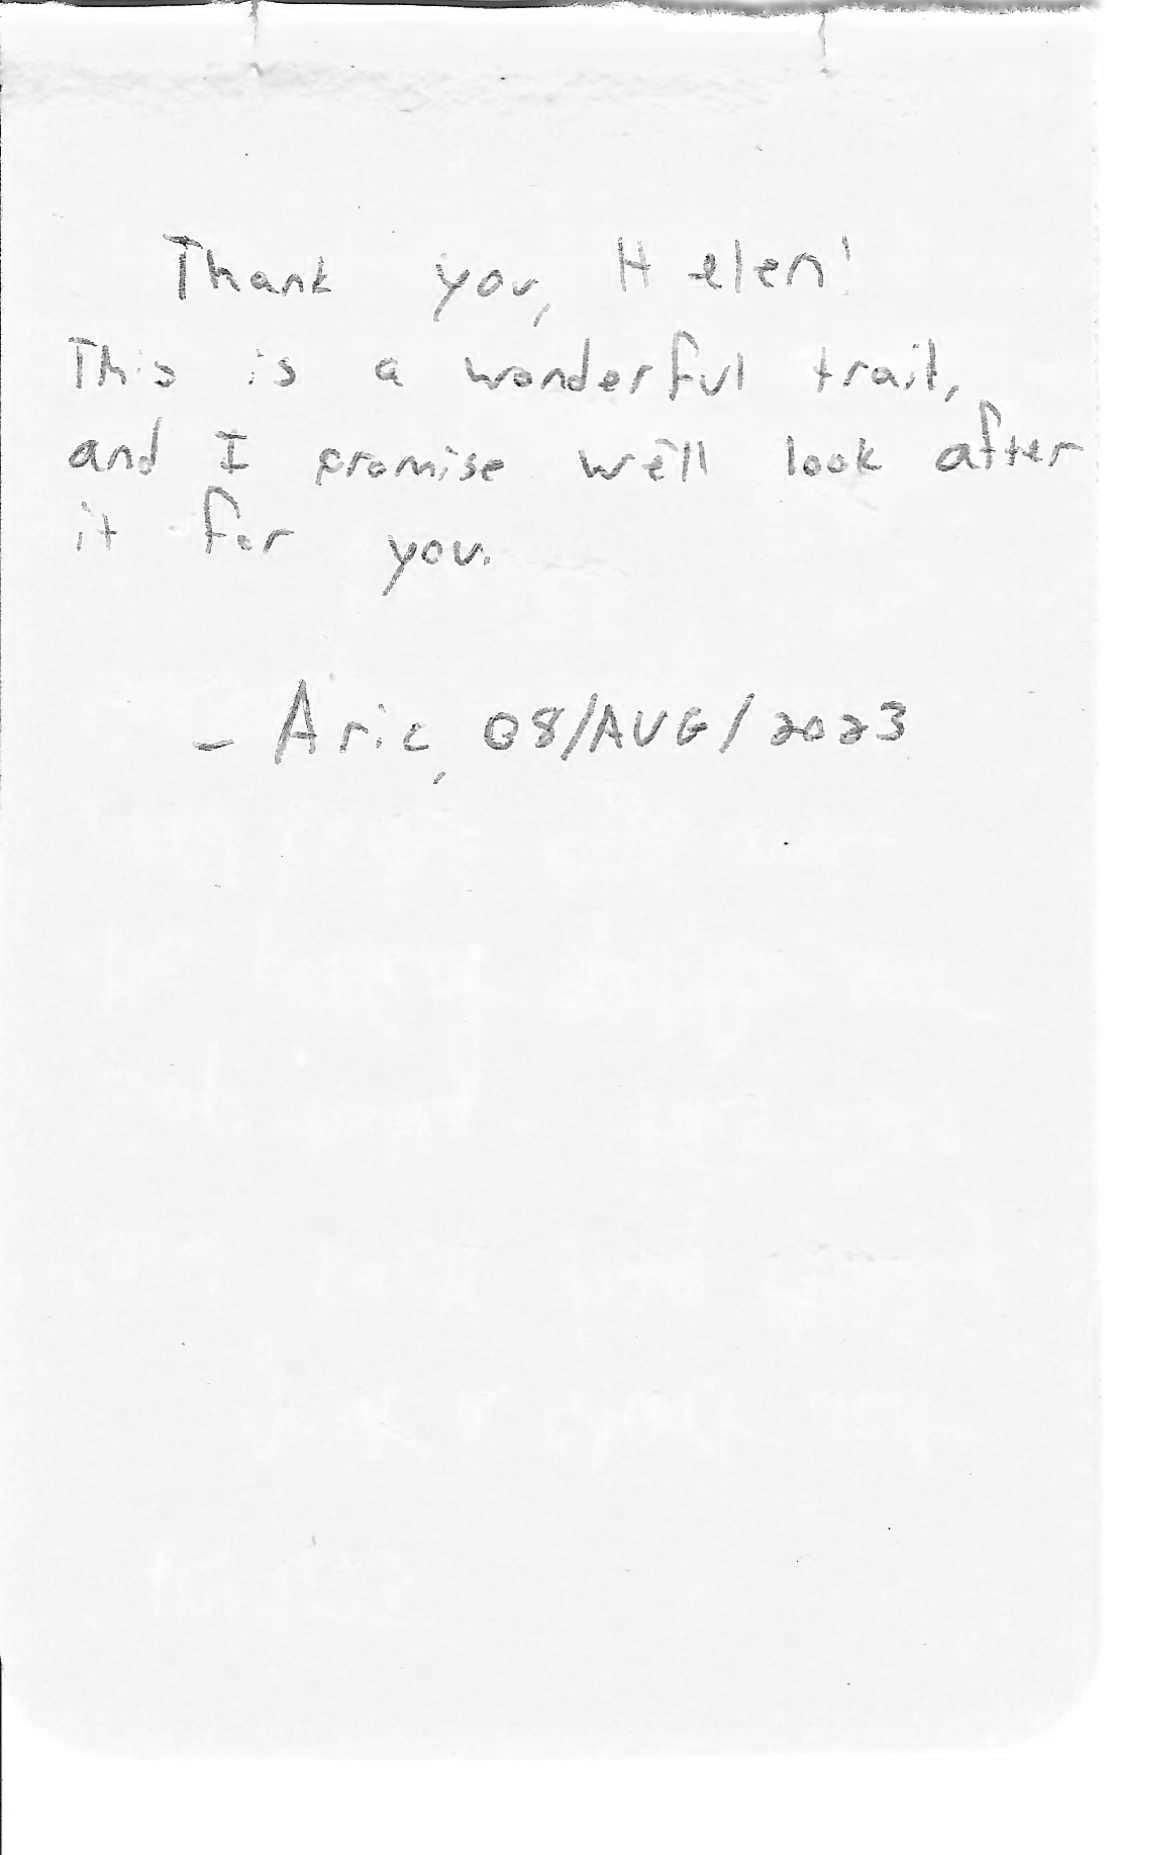 Thank you, Helen!
This is a wonderful trail,
and I promise we'll look after
it for you.
- Aric, 08/AUG/2023